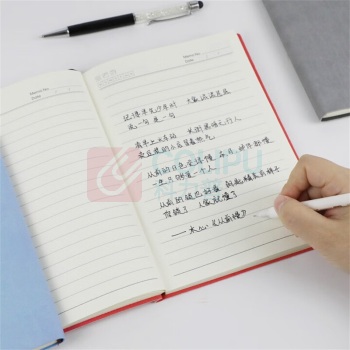 Memo No.
Date
Memo No.
Date
记得早先少年时 大家诚诚恳恳
说一句 是一句
清早上火车站 长街黑暗无行人
卖豆浆的小店冒着热气
从前的日色变得慢 车,马,邮件都慢
一生只够爱一个人
从前的锁也好看 钥匙精美有样子
你锁了 人家就懂了
——木心《从前慢》